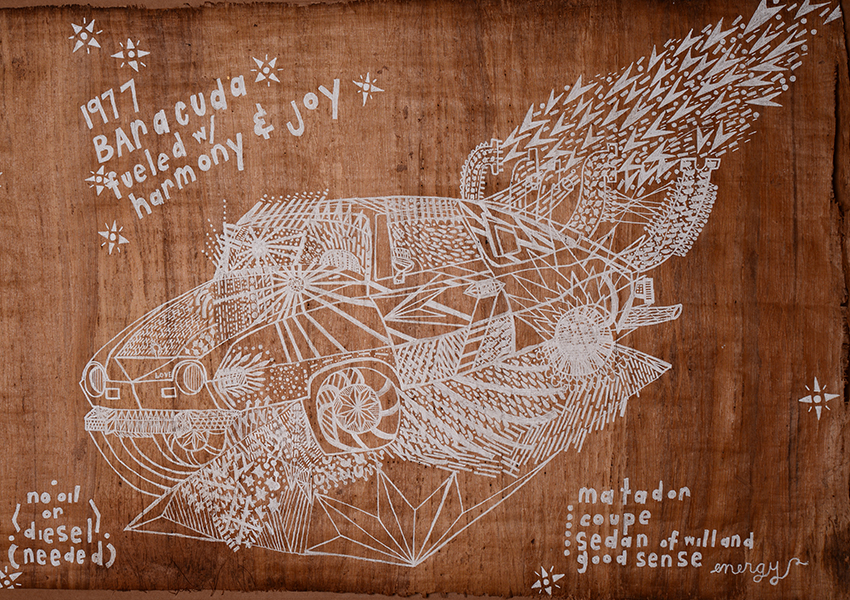 1977
BAracuda
fueled w/
harmony & Joy
LOVE
no oil
or
diesel
(needed)
matador
coupe
sedan of will and
good sense
energy